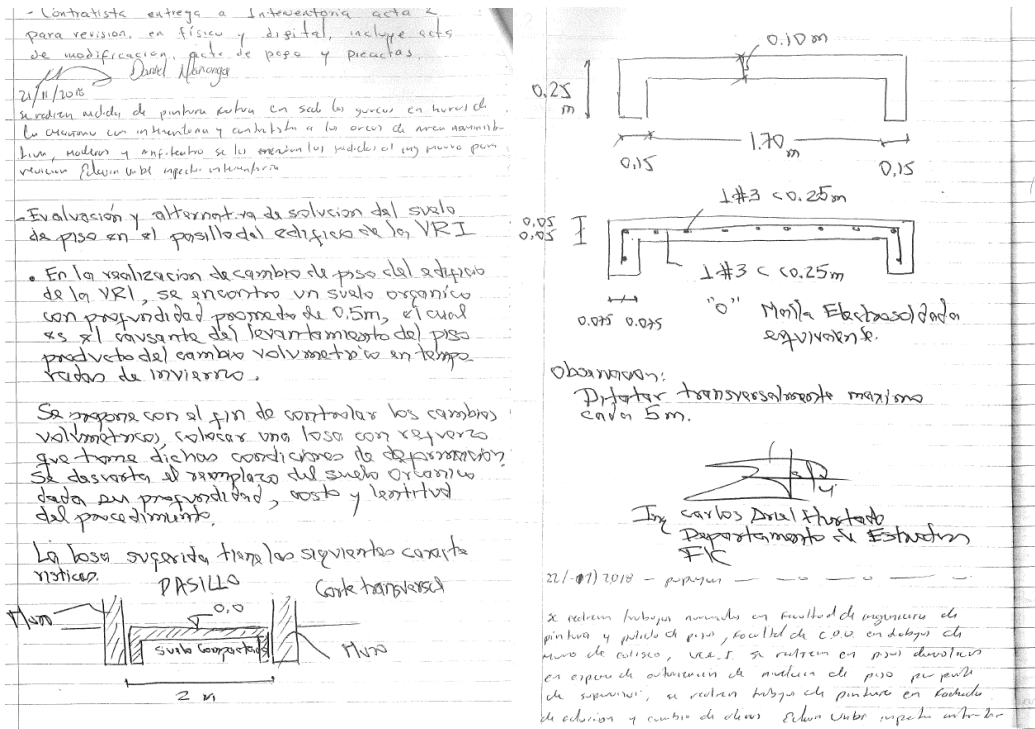 - Contratista entrega a Interventoria acta 2
para revision, en físico y digital, incluye acta
de modificacion, acta de pago y preactas.
Daniel
21/11/2018
se realizan medidas de pintura en
con interventoria y contratista a las areas de area
y anfiteatro se le los para
revision Edwin Uribe inspector interventoria
- Evaluación y alternativa de solucion del suelo
de piso en el pasillo del edificio de la VRI
• En la realizacion de cambio de piso del edificio
de la VRI, se encontro un suelo organico
con profundidad promedio de 0.5m, el cual
es el causante del levantamiento del piso
producto del cambio volumetrico en tempo
radas de invierno.
Se propone con el fin de controlar los cambios
volumetricos, colocar una losa con refuerzo
que tome dichas condiciones de deformacion.
Se descarta el reemplazo del suelo organico
dada su profundidad, costo y lentitud
del procedimiento.
La losa sugerida tiene las siguientes caracte
risticas.
PASILLO Corte transversal
Muro 0,0
Suelo Compactado Muro
2 m
0.10 m
0.25
m
1.70 m
0,15 0,15
1 #3 c 0.25m
0,05
0,05
1 #3 c c0.25m
0.075 0.075
"o" Malla Electrosoldada
equivalente.
Observacion:
Dilatar transversalmente maximo
cada 5m.
Ing Carlos Ariel Hurtado
Departamento de Estructuras
FIC
2018 - popayan
se realizan trabajos en facultad de ingenieria de
pintura y pulido de piso, facultad de en
muro de coliseo, se realizan en piso
en espera de autorizacion de de piso por parte
de supervisor, se realizan trabajos de pintura en fachada
de educacion y cambio de Edwin Uribe inspector